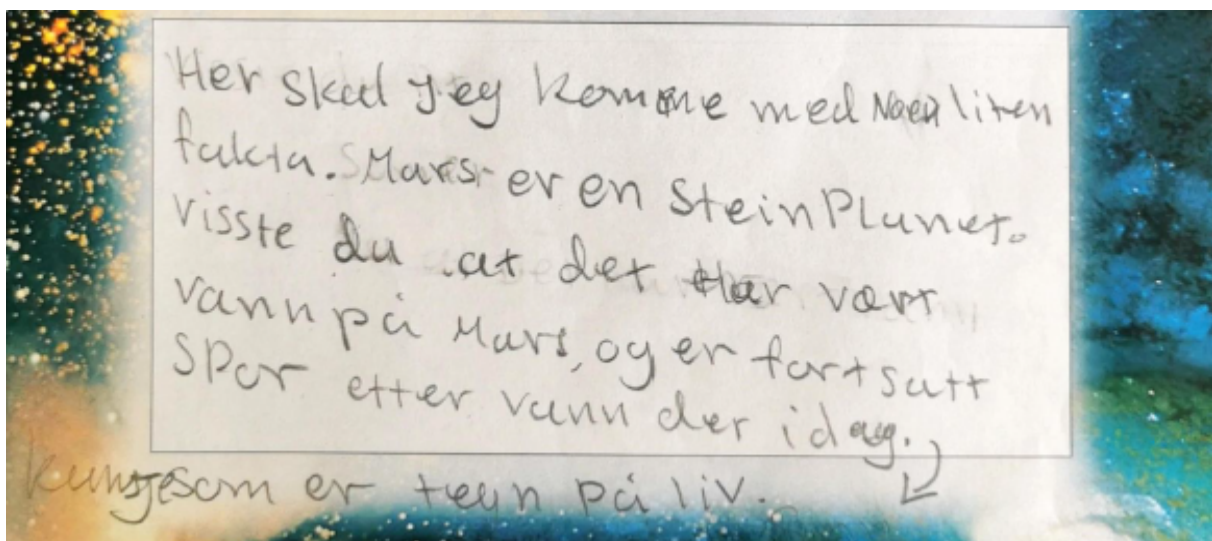 Her skal jeg komme med Noen liten
fakta. Mars er en SteinPlanet.
visste du at det Har vært
vann på Mars, og er fortsatt
SPor etter vann der idag.
kunsje som er tegn på liv.